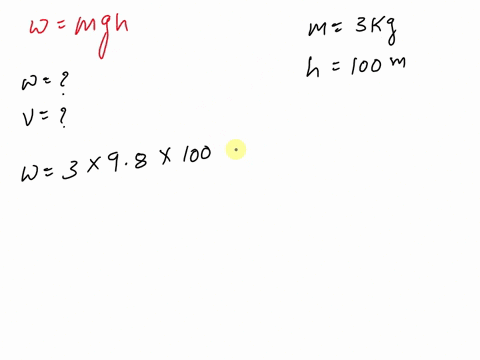 w = mgh
m = 3 Kg
h = 100 m
w = ?
v = ?
w = 3 × 9.8 × 100